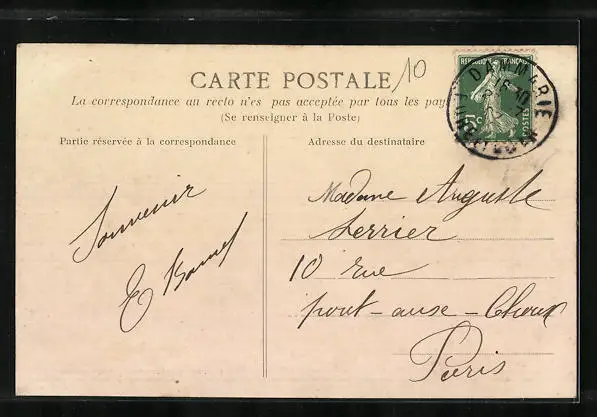 CARTE POSTALE
10
La correspondance au recto n'es pas acceptée par tous les pays
(Se renseigner à la Poste)
Partie réservée à la correspondance
Adresse du destinataire
REPUBLIQUE FRANÇAISE
POSTES
DAMMARIE
Souvenir
Madame Auguste
Lerrier
10 rue
pont-ause-Choux
Paris